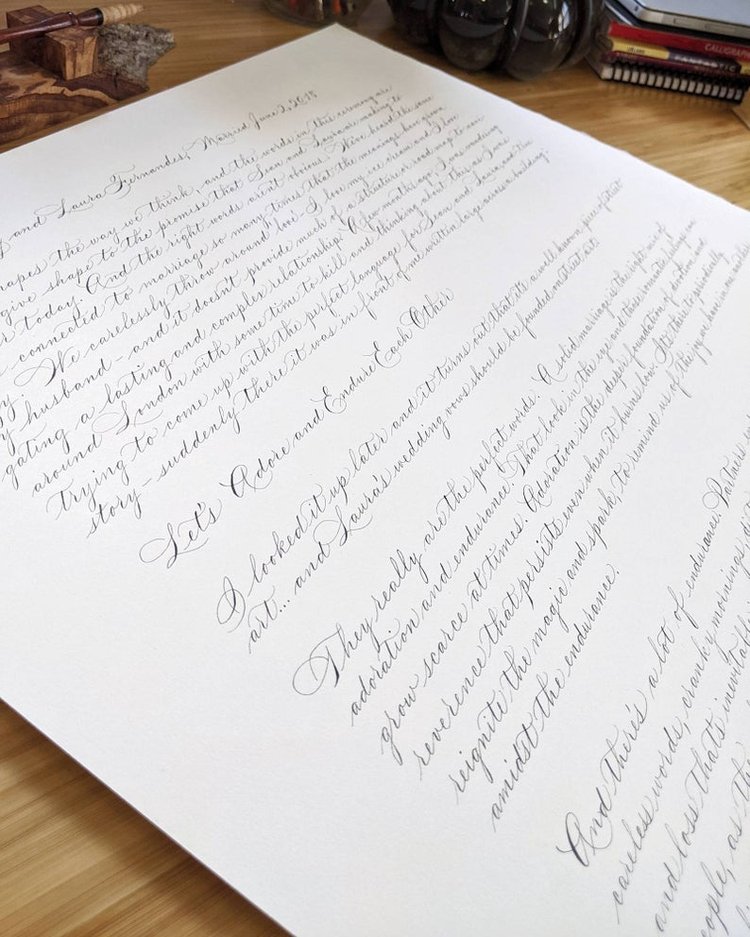 and Laura Fernandes, Married June 2, 2018
shapes the way we think, and the words in this ceremony are
give shape to the promise that Sean and Laura are making to
today. And the right words aren't obvious. We've heard the same
connected to marriage so many times that the meanings have grown
We carelessly throw around love - I love my ice cream and I love
husband - and it doesn't provide much of a structure or road map to navi-
gating a lasting and complex relationship. A few months ago I was wandering
around London with some time to kill and thinking about this, as I was
trying to come up with the perfect language for Sean and Laura and the
story - suddenly there it was in front of me written large across a building:
Let's Adore and Endure Each Other
I looked it up later and it turns out that it's a well known piece of street
art... and Laura's wedding vows should be founded on street art!
They really are the perfect words. A solid marriage is the right mix of
adoration and endurance. That look in the eye and those romantic feelings can
grow scarce at times. Adoration is the deeper foundation of devotion and
reverence that persists even when it burns low. It's there to periodically
reignite the magic and spark, to remind us of the joy we have in one another
amidst the endurance.
And there's a lot of endurance. Partners
careless words, cranky mornings
and loss that's inevitable
people, as the
CALLIGRAPHY